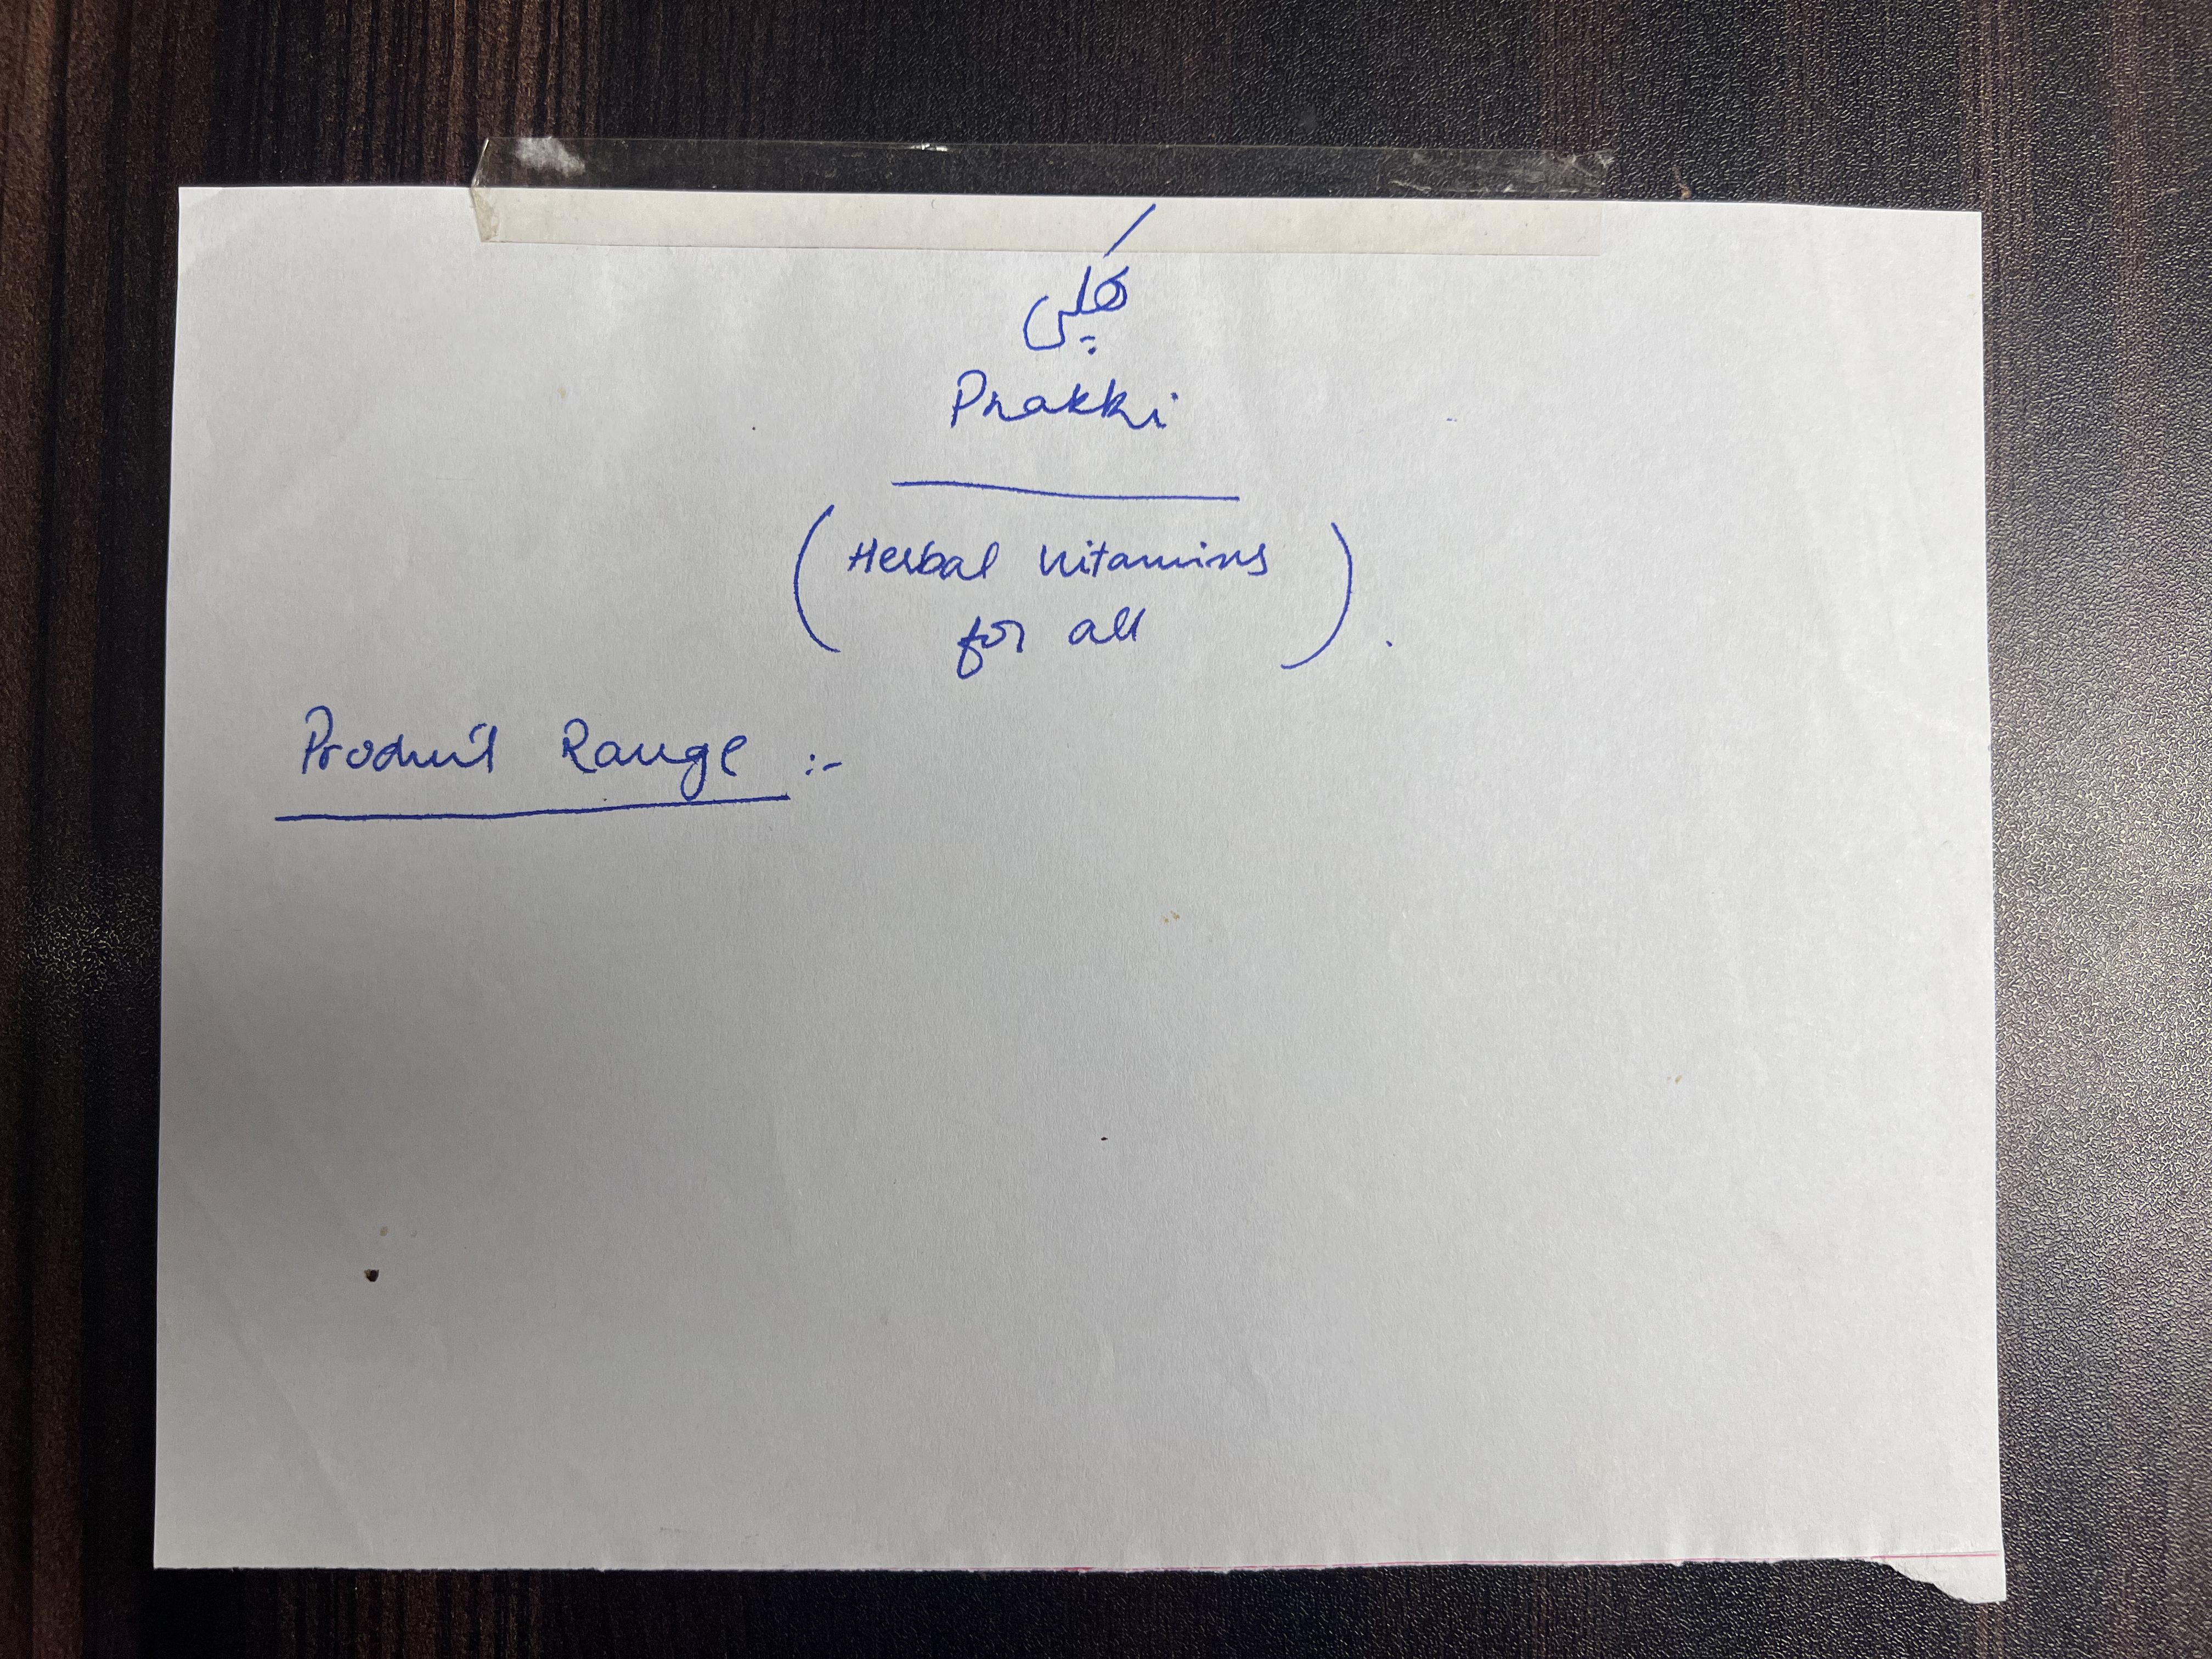 پھکی
Phakki
(Herbal Vitamins
for all).
Product Range :-